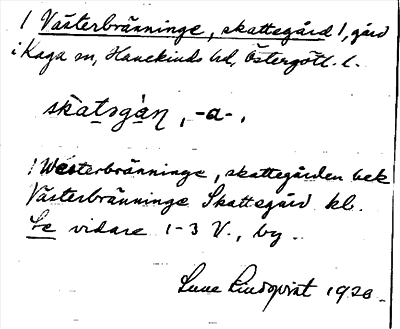 1 Västerbränninge, skattegård 1, gård
i Kaga sn, Hanekinds hd, Östergötl. l.
skatsgån, -a-,
1 Westerbränninge, skattegården bek
Västerbränninge Skattegård kb.
Se vidare 1-3 V., by.
Sune Lindqvist 1920.